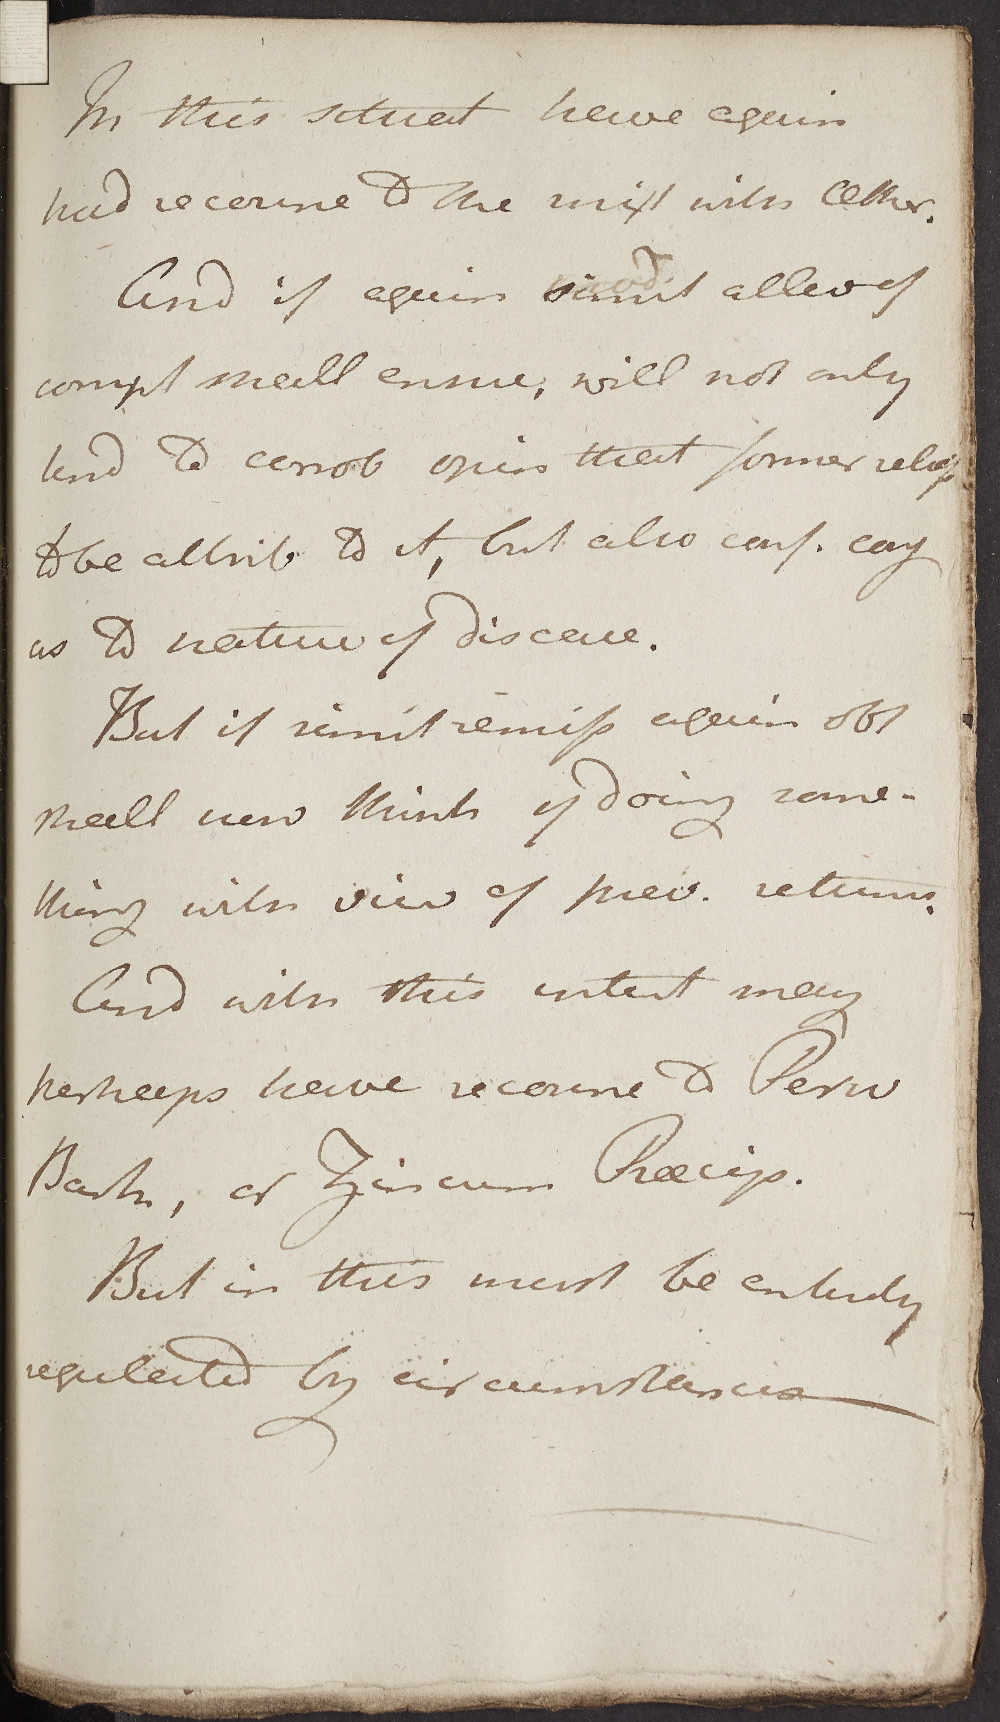 In this situat have again
had recourse to the mixt with Æther.
And if again simil allev of
compt shall ensue, will not only
tend to corrob opin that former relief
to be attrib to it, but also conf. conj
as to nature of disease.
But if simil remiss again obt
shall now think of doing some-
thing with view of prev. returns.
And with this intent may
perhaps have recourse to Peruv
Bark, or Zincum Præcip.
But in this must be entirely
regulated by circumstances